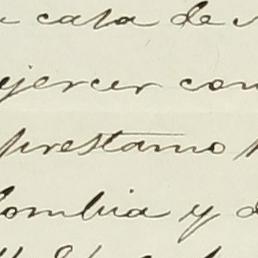 casa de
ejercer con
prestamo
lombia y d